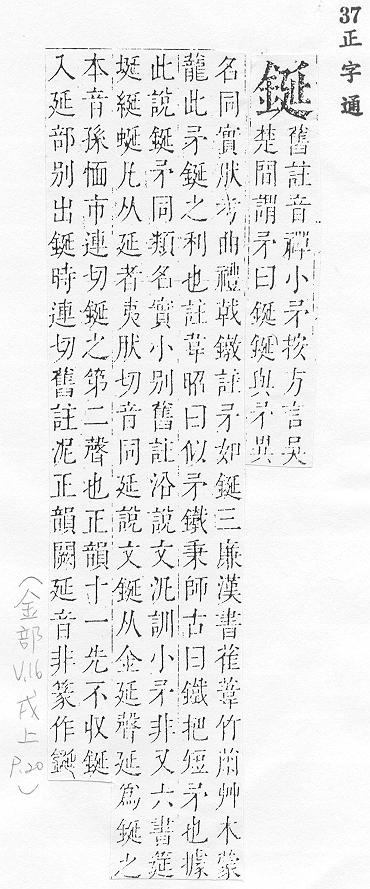 37 正字通
鋋
舊註音禪小矛按方言吳
楚間謂矛曰鋋鋋與矛異
名同實狀考曲禮戟鐓註矛如鋋三廉漢書萑葦竹蕭艸木蒙
蘢此矛鋋之利也註韋昭曰似矛鐵秉師古曰鐵把短矛也據
此說鋋矛同類名實小別舊註沿說文泥訓小矛非又六書筵
埏綖蜒凡从延者夷肰切音同延說文鋋从金延聲延為鋋之
本音孫愐市連切鋋之第二聲也正韻寸一先不收鋋
入延部別出鋋時連切舊註泥正韻闕延音非篆作鋋
(金部 V.16 戌上 P.20)